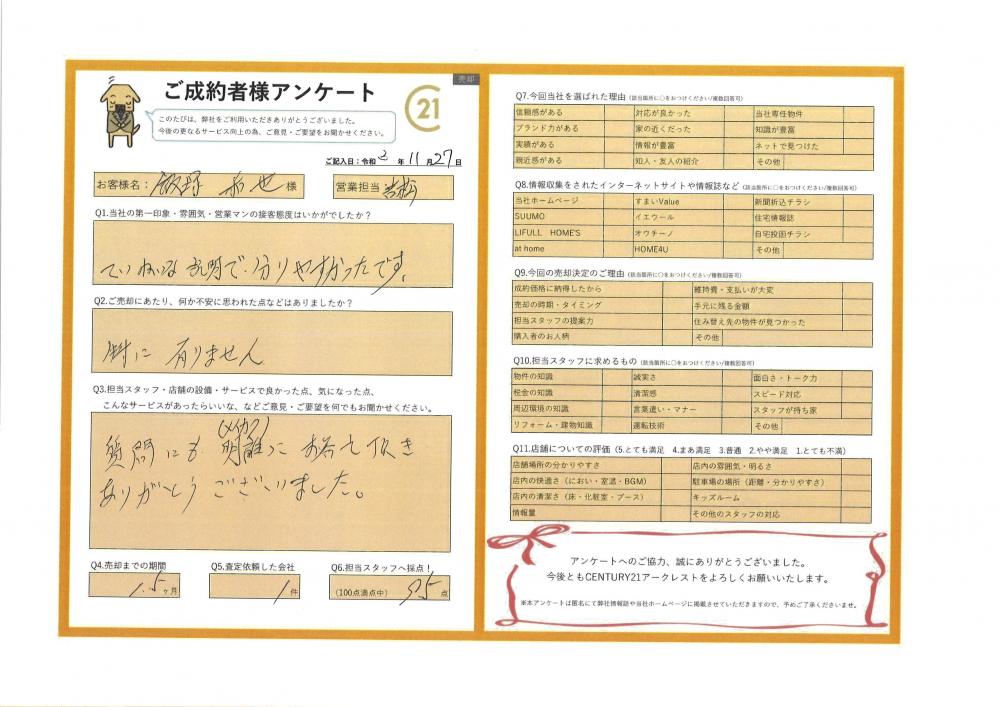 売却
ご成約者様アンケート
21
このたびは、弊社をご利用いただきありがとうございました。
今後の更なるサービス向上の為、ご意見・ご要望をお聞かせください。
ご記入日：令和 2 年 11 月 27 日
お客様名： 様
営業担当 吉松
Q1.当社の第一印象・雰囲気・営業マンの接客態度はいかがでしたか？
ていねいな説明で分りやすかったです。
Q2.ご売却にあたり、何か不安に思われた点などはありましたか？
特に有りません
Q3.担当スタッフ・店舗の設備・サービスで良かった点、気になった点、
こんなサービスがあったらいいな、などご意見・ご要望を何でもお聞かせください。
(メイカク)
質問にも明確にお答え頂き
ありがとうございました。
Q4.売却までの期間
1.5ヶ月
Q5.査定依頼した会社
1件
Q6.担当スタッフへ採点！
(100点満点中) 95点
Q7.今回当社を選ばれた理由（該当箇所に○をおつけください/複数回答可）
信頼感がある 対応が良かった 当社専任物件
ブランド力がある 家の近くだった 知識が豊富
実績がある 情報が豊富 ネットで見つけた
親近感がある 知人・友人の紹介 その他
Q8.情報収集をされたインターネットサイトや情報誌など（該当箇所に○をおつけください/複数回答可）
当社ホームページ すまいValue 新聞折込チラシ
SUUMO イエウール 住宅情報誌
LIFULL HOME'S オウチーノ 自宅投函チラシ
at home HOME4U その他
Q9.今回の売却決定のご理由（該当箇所に○をおつけください/複数回答可）
成約価格に納得したから 維持費・支払いが大変
売却の時期・タイミング 手元に残る金額
担当スタッフの提案力 住み替え先の物件が見つかった
購入者のお人柄 その他
Q10.担当スタッフに求めるもの（該当箇所に○をおつけください/複数回答可）
物件の知識 誠実さ 面白さ・トーク力
税金の知識 清潔感 スピード対応
周辺環境の知識 言葉遣い・マナー スタッフが持ち家
リフォーム・建物知識 運転技術 その他
Q11.店舗についての評価（5.とても満足 4.まあ満足 3.普通 2.やや満足 1.とても不満）
店舗場所の分かりやすさ 店内の雰囲気・明るさ
店内の快適さ（におい・室温・BGM） 駐車場の場所（距離・分かりやすさ）
店内の清潔さ（床・化粧室・ブース） キッズルーム
情報量 その他のスタッフの対応
アンケートへのご協力、誠にありがとうございました。
今後ともCENTURY21アークレストをよろしくお願いいたします。
※本アンケートは匿名にて弊社情報誌や当社ホームページに掲載させていただきますので、予めご了承くださいませ。